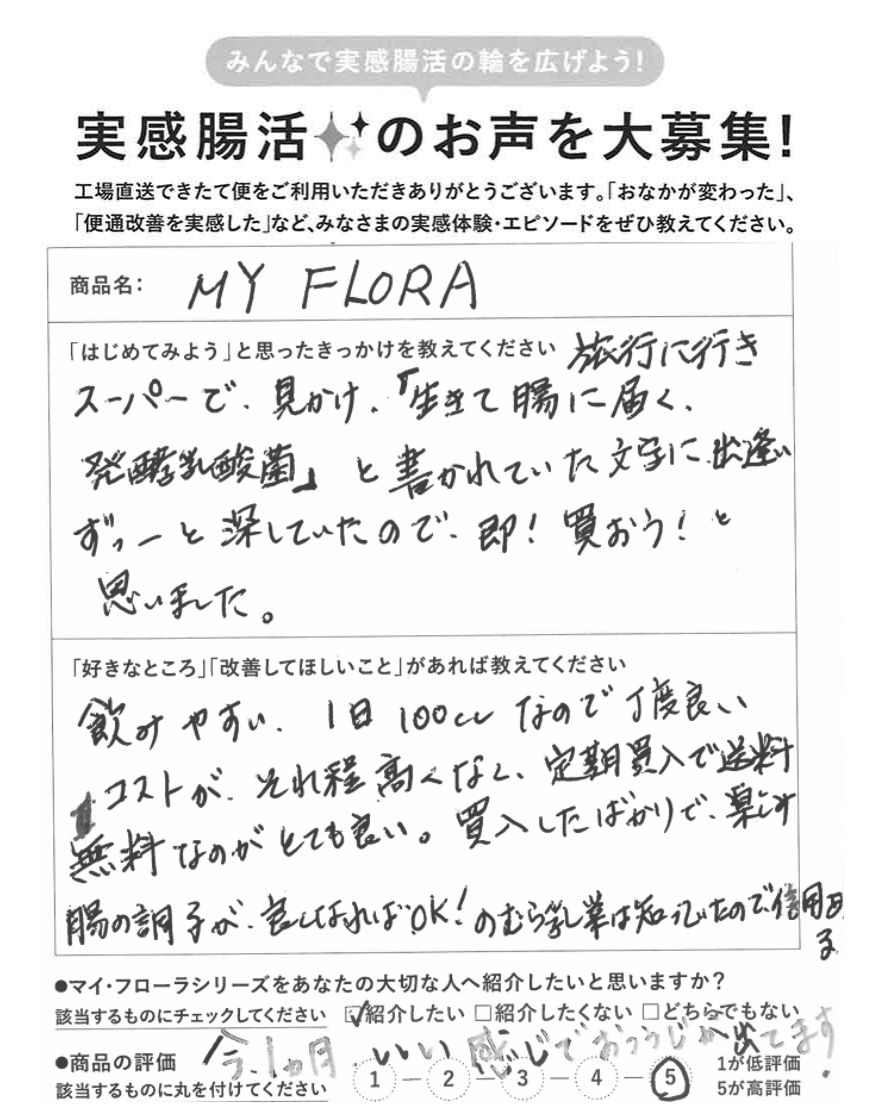 みんなで実感腸活の輪を広げよう!
実感腸活のお声を大募集!
工場直送できたて便をご利用いただきありがとうございます。「おなかが変わった」、
「便通改善を実感した」など、みなさまの実感体験・エピソードをぜひ教えてください。
商品名: MY FLORA
「はじめてみよう」と思ったきっかけを教えてください 旅行に行き
スーパーで、見かけ、「生きて腸に届く、
発酵乳酸菌」と書かれていた文字に出逢い
ずっーと探していたので、即!買おう!と
思いました。
「好きなところ」「改善してほしいこと」があれば教えてください
飲みやすい、1日100ccなので丁度良い
コストが、それ程高くなく、定期買入で送料
無料なのがとても良い。買入したばかりで、楽しみ
腸の調子が、良くなればOK!のむら乳業は知っていたので信用ある
●マイ・フローラシリーズをあなたの大切な人へ紹介したいと思いますか?
該当するものにチェックしてください ☑紹介したい □紹介したくない □どちらでもない
今、1ヵ月、いい感じでおつうじが出てます。
●商品の評価
該当するものに丸を付けてください 1 — 2 — 3 — 4 — 5
1が低評価
5が高評価